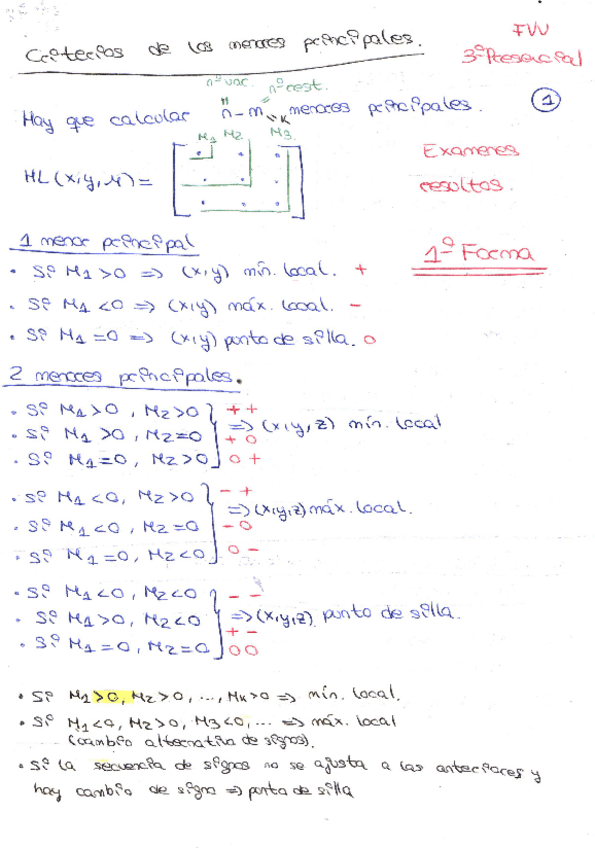 Criterios de los menores principales.
FVV
3º Presencial
nº var. nº rest.
Hay que calcular n-m = K menores principales.
1
M1 M2 M3
HL(x,y,μ)=
Examenes
resoltos.
1º Forma
1 menor principal
• Si M1 >0 => (x,y) mín. local. +
• Si M1 <0 => (x,y) máx. local. -
• Si M1 =0 => (x,y) punto de silla. 0
2 menores principales.
• Si M1 >0, M2 >0 + +
• Si M1 >0, M2=0 + 0 => (x,y,z) mín. local
• Si M1=0, M2 >0 0 +
• Si M1 <0, M2 >0 - +
• Si M1 <0, M2 =0 - 0 => (x,y,z) máx. local.
• Si M1 =0, M2<0 0 -
• Si M1<0, M2<0 - -
• Si M1 >0, M2 <0 + - => (x,y,z) punto de silla.
• Si M1 =0, M2 =0 00
• Si M1 >0, M2 >0, ..., Mk >0 => mín. local.
• Si M1 <0, M2 >0, M3 <0, ... => máx. local
(cambio alternativa de signos).
• Si la secuencia de signos no se ajusta a las anteriores y
hay cambio de signo => punto de silla